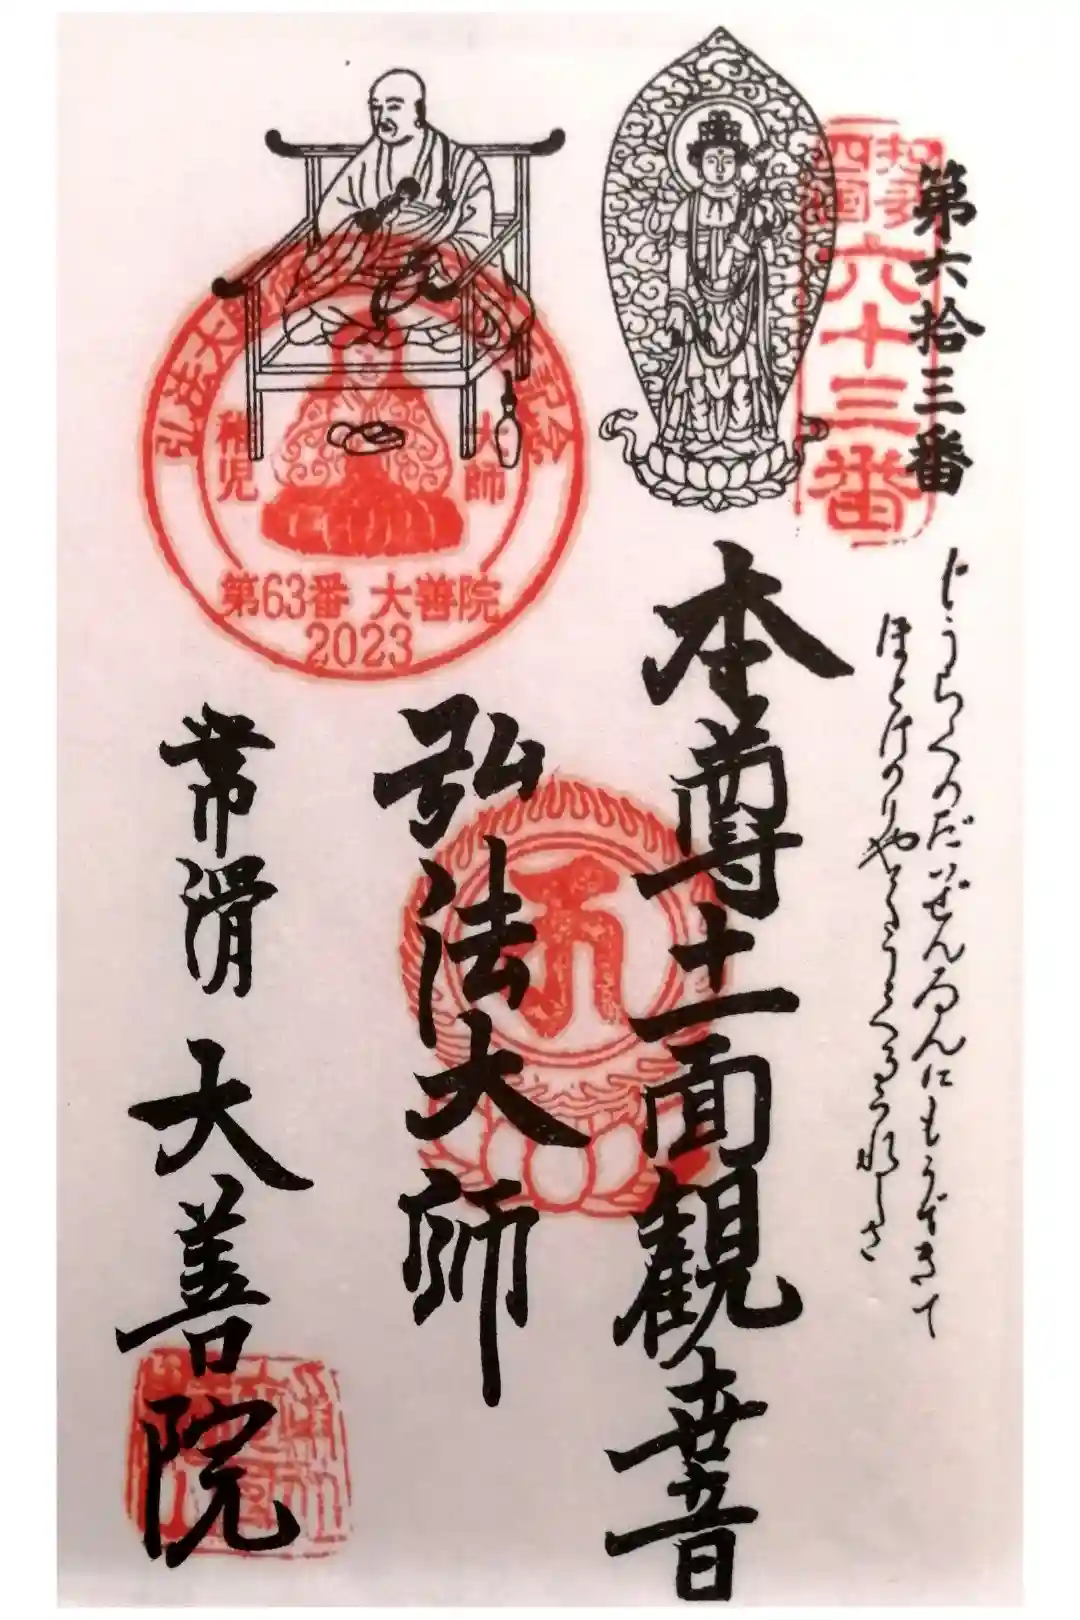 第六拾三番
知多
四国
六十三番
じうらくのだいぜんゐんにもうできて
ほとけのりやくをうくるうれしさ
本尊十一面観世音
弘法大師
常滑 大善院
弘法大師
稚児
大師
第63番 大善院
2023